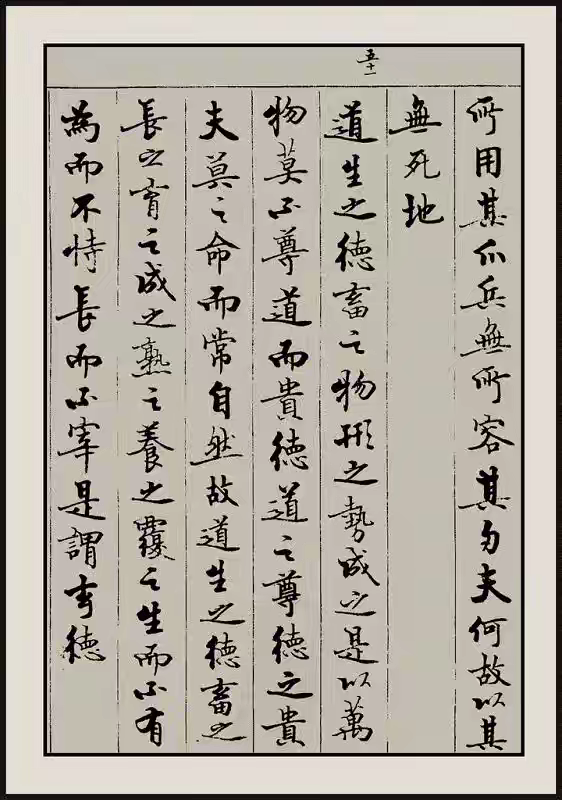 五十一
所用其爪兵無所容其刃夫何故以其
無死地
道生之德畜之物形之勢成之是以萬
物莫不尊道而貴德道之尊德之貴
夫莫之命而常自然故道生之德畜之
長之育之成之熟之養之覆之生而不有
為而不恃長而不宰是謂玄德